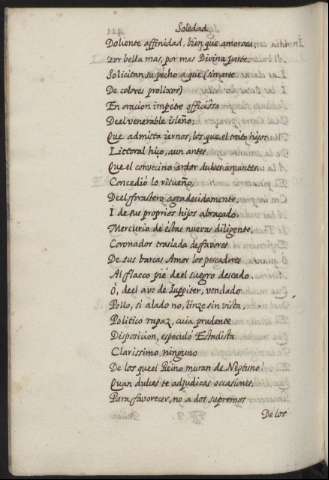 Soledad
Doliente affinidad, bien que amorosa
Por bella mas, por mas Divina parte.
Solicitan, su pecho a que (sin arte
De colores prolixos)
En oracion impetre officiosa
Deel venerable isleño,
Que admita iernos, los que el trato hijos
Littoral hizo, aun antes
Que el convecino ardor dulces amantes.
Concedió lo risueño,
Deel forastero agradecidamente,
I de sus proprios hijos abraçado.
Mercurio de estas nuevas diligente,
Coronador traslada de favores
De sus barcas Amor los pescadores
Al flaco pié deel suegro deseado.
ô, deel ave de Iuppiter, vendado
Pollo, si alado no, linze sin vista,
Politico rapaz, cuia prudente
Disposicion, especuló Estadista
Clarissimo, ninguno
De los que el Reino muran de Neptuno!
Quan dulces te adjudicas occasiones,
Para favorecer, no a dos supremos
De los